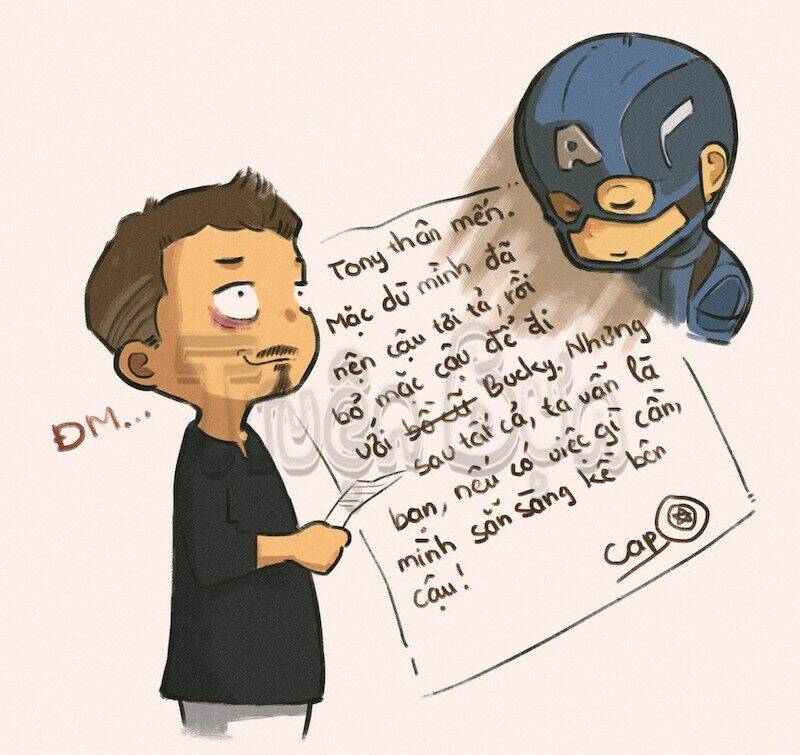 Tony thân mến.
Mặc dù mình đã
nện cậu tơi tả, rồi
bỏ mặc cậu để đi
với bồ cũ Bucky. Nhưng
sau tất cả, ta vẫn là
bạn, nếu có việc gì cần,
mình sẵn sàng kề bên
cậu!
Cap
ĐM...
A